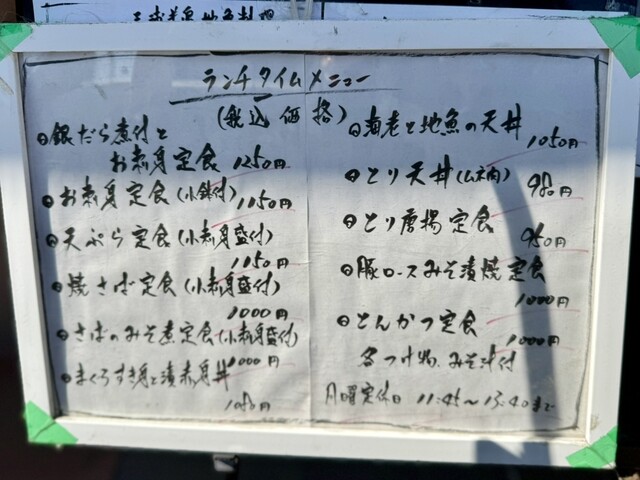 ランチタイムメニュー
(税込価格)
銀だら煮付と
お刺身定食 1250円
お刺身定食(小鉢付) 1150円
天ぷら定食(小刺身盛付)
1150円
焼さば定食(小刺身盛付)
1000円
さばのみそ煮定食(小刺身盛付)
1000円
まぐろすき身と漬刺身丼
1080円
海老と地魚の天丼
1050円
とり天丼(ムネ肉)
980円
とり唐揚定食
950円
豚ロースみそ漬焼定食
1000円
とんかつ定食
1000円
各つけ物、みそ汁付
月曜定休日 11:45〜13:40まで